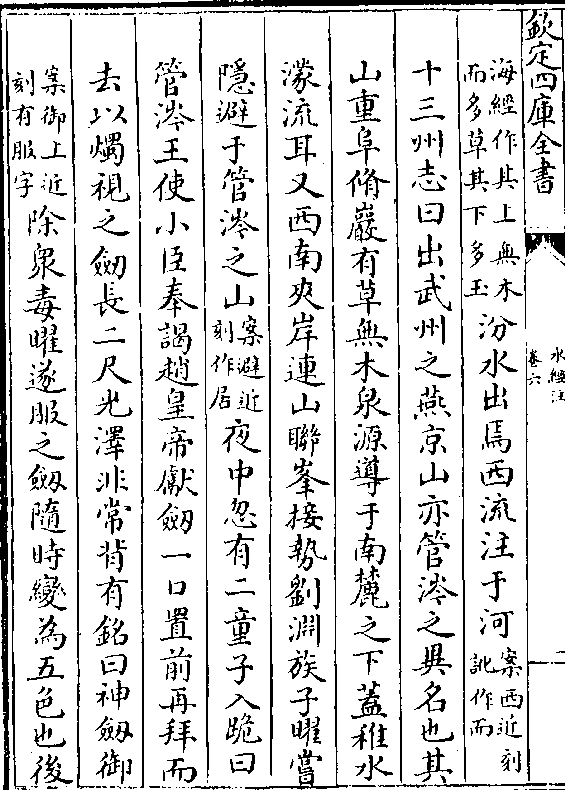 欽定四庫全書
水經注
卷六
二
海經作其上無木
而多草其下多玉汾水出焉西流注于河案西近刻
訛作而
十三州志曰出武州之燕京山亦管涔之異名也其
山重阜脩巖有草無木泉源導于南麓之下蓋稚水
濛流耳又西南夾岸連山聯峯接勢劉淵族子曜嘗
隱避于管涔之山案避近
刻作居夜中忽有二童子入跪曰
管涔王使小臣奉謁趙皇帝獻劒一口置前再拜而
去以燭視之劒長二尺光澤非常背有銘曰神劒御
案御上近
刻有服字除衆毒曜遂服之劒隨時變為五色也後